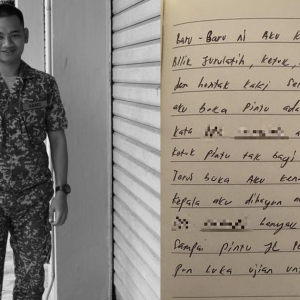 Baru-Baru ni Aku k
Bilik Jurulatih, ketuk,
dan hentak kaki Se
aku buka pintu ada
kata
ketuk pintu tak bagi
Terus buka Aku ken
Kepala aku dihayun m
Sampai pintu
pon Luka ujian un